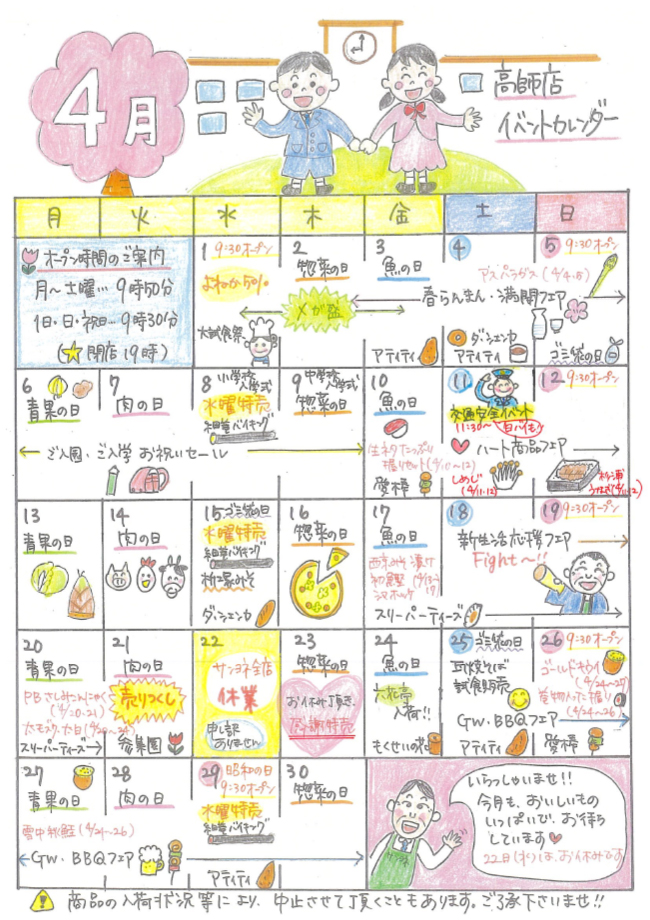 4月
高師店
イベントカレンダー
月 火 水 木 金 土 日
オープン時間のご案内
月～土曜…9時50分
1日・日・祝日…9時30分
(☆閉店19時)
1 9:30オープン
大試食祭
2 惣菜の日
メガ盛
3 魚の日
アティティ
4
春らんまん・満開フェア
ダンシェンカ
アティティ
5 9:30オープン
アスパラガス(4/4.5)
ゴミ袋の日
6
青果の日
7
肉の日
ご入園・ご入学お祝いセール
8 小学校入学式
水曜特売
細昆バイキング
9 中学校入学式
惣菜の日
10
魚の日
生ネタたっぷり
握りセット(4/10～12)
愛棒
11
交通安全イベント
11:30～ 白バイも!
♥ハート商品フェア
しめじ
(4/11・12)
12 9:30オープン
杉浦
うなぎ(4/11・12)
13
青果の日
14
肉の日
15 ゴミ袋の日
水曜特売
細昆バイキング
桝塚みそ
ダンシェンカ
16
惣菜の日
17
魚の日
西京みそ漬け
初鰹
スリーパーティーズ
18
新生活応援フェア
Fight～!!
19 9:30オープン
20
青果の日
PBさしみこんにゃく
(4/20・21)
スリーパーティーズ
21
肉の日
売りつくし
参集園
22
サンヨネ全店
休業
申し訳
ありません
23
惣菜の日
お休み頂き、
感謝特売
24
魚の日
六花亭
入荷!!
もくせいの花
25 ゴミ袋の日
瓦焼そば
試食販売
GW・BBQフェア
アティティ
26 9:30オープン
ゴールドキウイ
(4/24～27)
(4/24～26)
愛棒
27
青果の日
雪中秋鮭(4/24～26)
GW・BBQフェア
28
肉の日
29 昭和の日
9:30オープン
水曜特売
細昆バイキング
アティティ
30
惣菜の日
いらっしゃいませ!!
今月も、おいしいもの
いっぱいで、お待ち
しています♥
22日(水)は、お休みです
商品の入荷状況等により、中止させて頂くこともあります。ご了承下さいませ!!